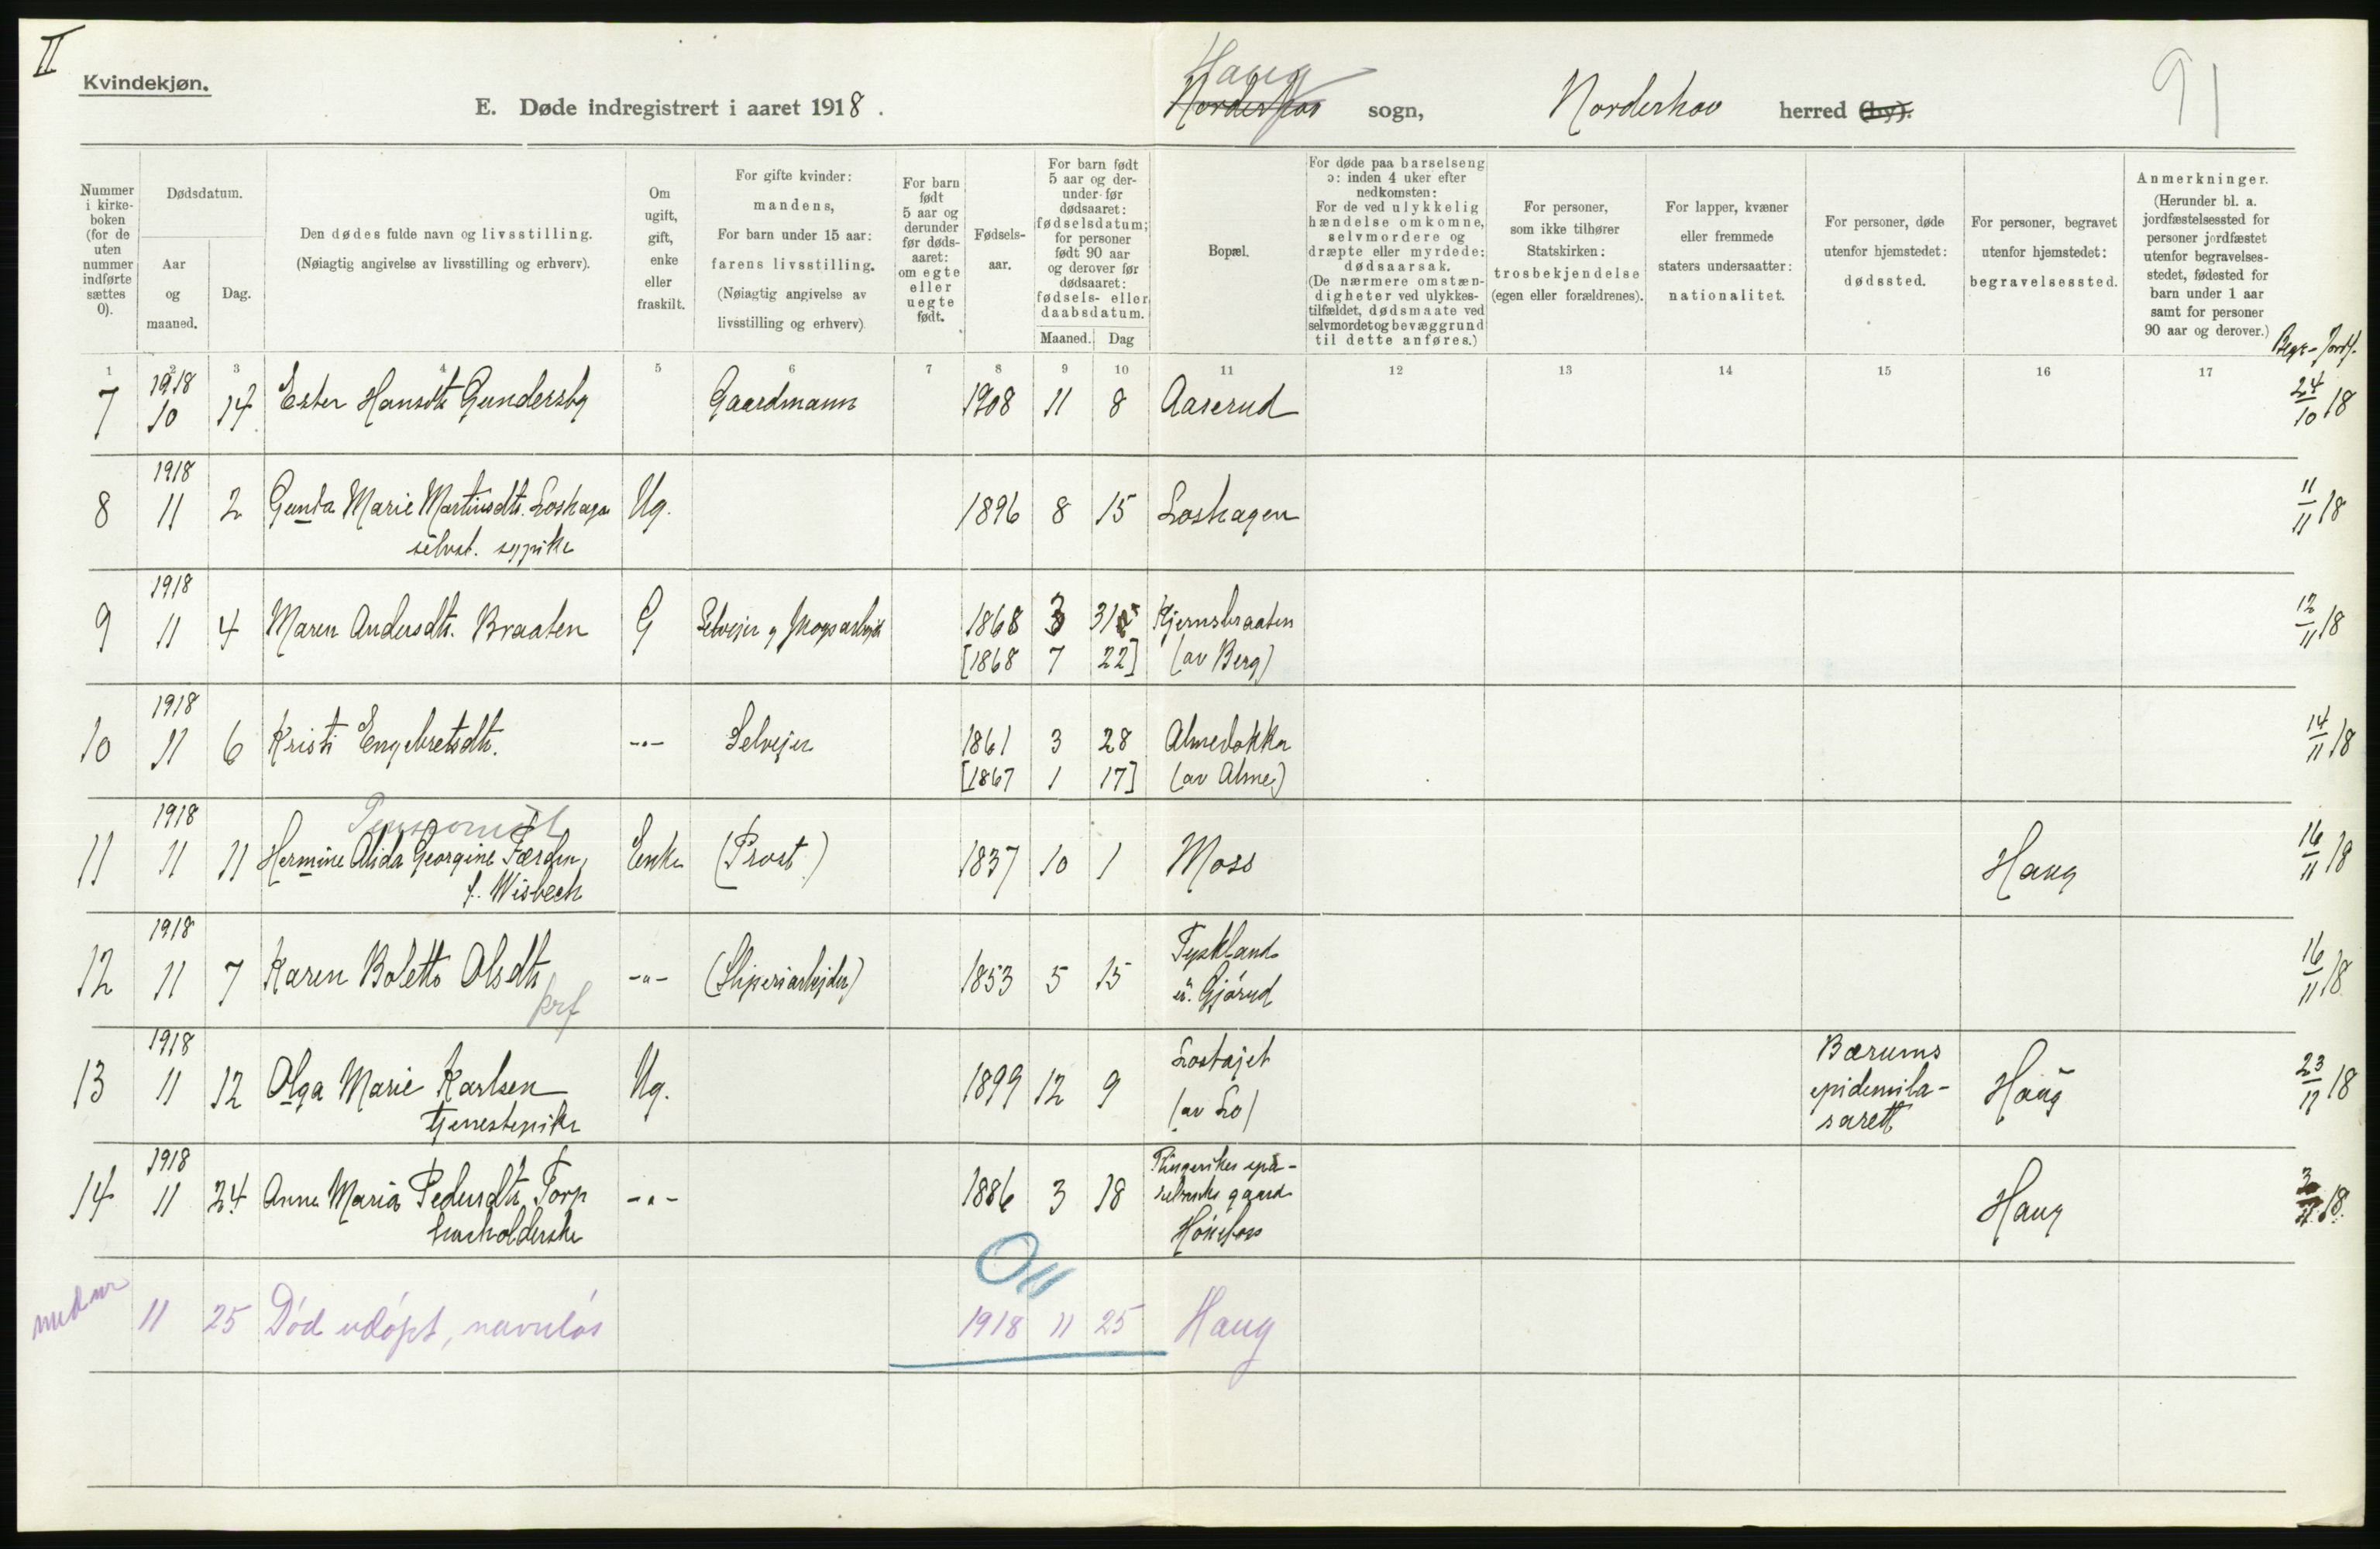 II
Kvindekjøn.
E. Døde indregistrert i aaret 1918.
Haug
Norderhov sogn, Norderhov herred (by).
91
Nummer i kirkeboken (for de uten nummer indførte sættes 0).
Dødsdatum.
Aar og maaned.
Dag.
Den dødes fulde navn og livsstilling.
(Nøiagtig angivelse av livsstilling og erhverv).
Om ugift, gift, enke eller fraskilt.
For gifte kvinder: mandens,
For barn under 15 aar: farens livsstilling.
(Nøiagtig angivelse av livsstilling og erhverv)
For barn født 5 aar og derunder før dødsaaret: om egte eller uegte født.
Fødselsaar.
For barn født 5 aar og derunder før dødsaaret: fødselsdatum; for personer født 90 aar og derover før dødsaaret: fødsels- eller daabsdatum.
Maaned. Dag
Bopæl.
For døde paa barselseng ɔ: inden 4 uker efter nedkomsten:
For de ved ulykkelig hændelse omkomne, selvmordere og dræpte eller myrdede: dødsaarsak.
(De nærmere omstændigheter ved ulykkestilfældet, dødsmaate ved selvmordet og bevæggrund til dette anføres.)
For personer, som ikke tilhører Statskirken: trosbekjendelse (egen eller forældrenes).
For lapper, kvæner eller fremmede staters undersaatter: nationalitet.
For personer, døde utenfor hjemstedet: dødssted.
For personer, begravet utenfor hjemstedet: begravelsessted.
Anmerkninger.
(Herunder bl. a. jordfæstelsessted for personer jordfæstet utenfor begravelsesstedet, fødested for barn under 1 aar samt for personer 90 aar og derover.)
Begr.- Jordf.
1 2 3 4 5 6 7 8 9 10 11 12 13 14 15 16 17
1918
7 10 14 Ester Hansdt. Gundersby Gaardmann 1908 11 8 Aaserud 24/10 18
1918
8 11 2 Gunda Marie Martinsdtr. Loshagen Ug. 1896 8 15 Loshagen 11/11 18
selvst. sypike
1918
9 11 4 Maren Andersdtr. Braaten G Selveier og skogsarbeid 1868 3 31 Kjernsbraaten 12/11 18
[1868 7 22] (av Berg)
1918
10 11 6 Kristi Engebretsdtr. -"- Selvejer 1861 3 28 Almedokka 14/11 18
[1867 1 17] (av Alme)
1918
11 11 11 Hermine Alida Georgine Færden, Enke (Prost) 1837 10 1 Moss Haug 16/11 18
f. Wisbech
1918
12 11 7 Karen Bolette Olsdtr. -"- (Sliperiarbejder) 1853 5 15 Tyskland 16/11 18
u. Gjørud
1918
13 11 12 Olga Marie Karlsen Ug. 1899 12 9 Lostøjet Bærums Haug 23/11 18
tjenestepike (av Lo) epidemila-
sarett
1918
14 11 24 Anne Maria Pedersdtr. Torp -"- 1886 3 18 Ringerikes spa- Haug 18
husholderske rebanks gaard
Hønefoss
11 25 Død udøpt, navnløs 1918 11 25 Haug